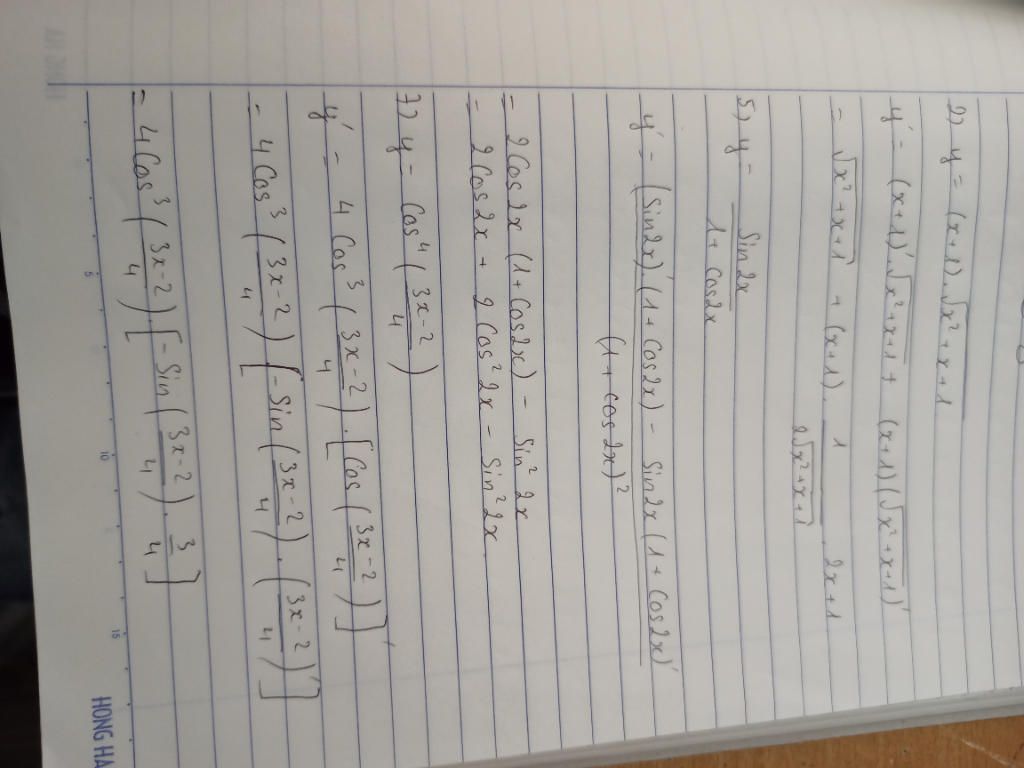 2) y = (x+1).√x²+x+1
y' = (x+1)'√x²+x+1 + (x+1)(√x²+x+1)'
= √x²+x+1 + (x+1). 1/2√x²+x+1 . 2x+1
5) y = Sin2x/1+cos2x
y' = (Sin2x)'(1+Cos2x) - Sin2x(1+Cos2x)'/(1+cos2x)²
= 2Cos2x (1+Cos2x) - Sin²2x
= 2Cos2x + 2Cos²2x - Sin²2x
7) y = Cos⁴(3x-2/4)
y' = 4Cos³(3x-2/4).[Cos(3x-2/4)]'
= 4Cos³(3x-2/4)[-Sin(3x-2/4).(3x-2/4)']
= 4Cos³(3x-2/4).[-Sin(3x-2/4).3/4]
5 10 15
HONG HA